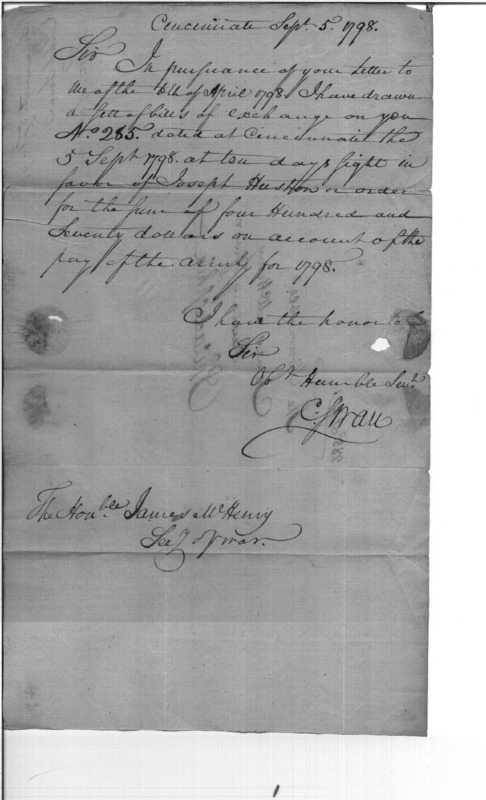 Cencinnate Sept. 5. 1798.
Sir
In pursuance of your Letter to
me of the 6th of April 1798 I have drawn
a sett of bills of exchange on you
No. 285. dated at Cincinnati the
5 Sept 1798. at ten days sight in
favor of Joseph Huston or order
for the sum of four Hundred and
Seventy dollars on account of the
pay of the army for 1798.
I have the honor to be
Sir
Obt Humble Servt
C. Swan
The Honble James McHenry
Secy of war.